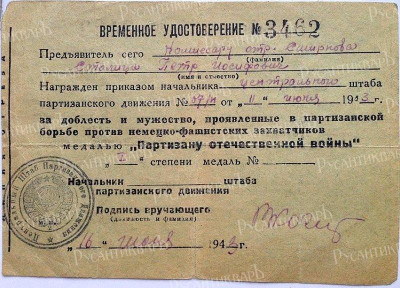 ВРЕМЕННОЕ УДОСТОВЕРЕНИЕ № 3462
Предъявитель сего Комиссару отр. Смирнова
(фамилия)
Петр Иосифович
(имя и отчество)
Награжден приказом начальника центрального штаба
партизанского движения № от „11“ июня 1943 г.
за доблесть и мужество, проявленные в партизанской
борьбе против немецко-фашистских захватчиков
медалью „Партизану отечественной войны“
степени медаль №
Начальник штаба
партизанского движения
Подпись вручающего
(должность и фамилия)
„16“ июня 1943 г.
Центральный Штаб Партизанского Движения
РУСАНТИКВАРЪ